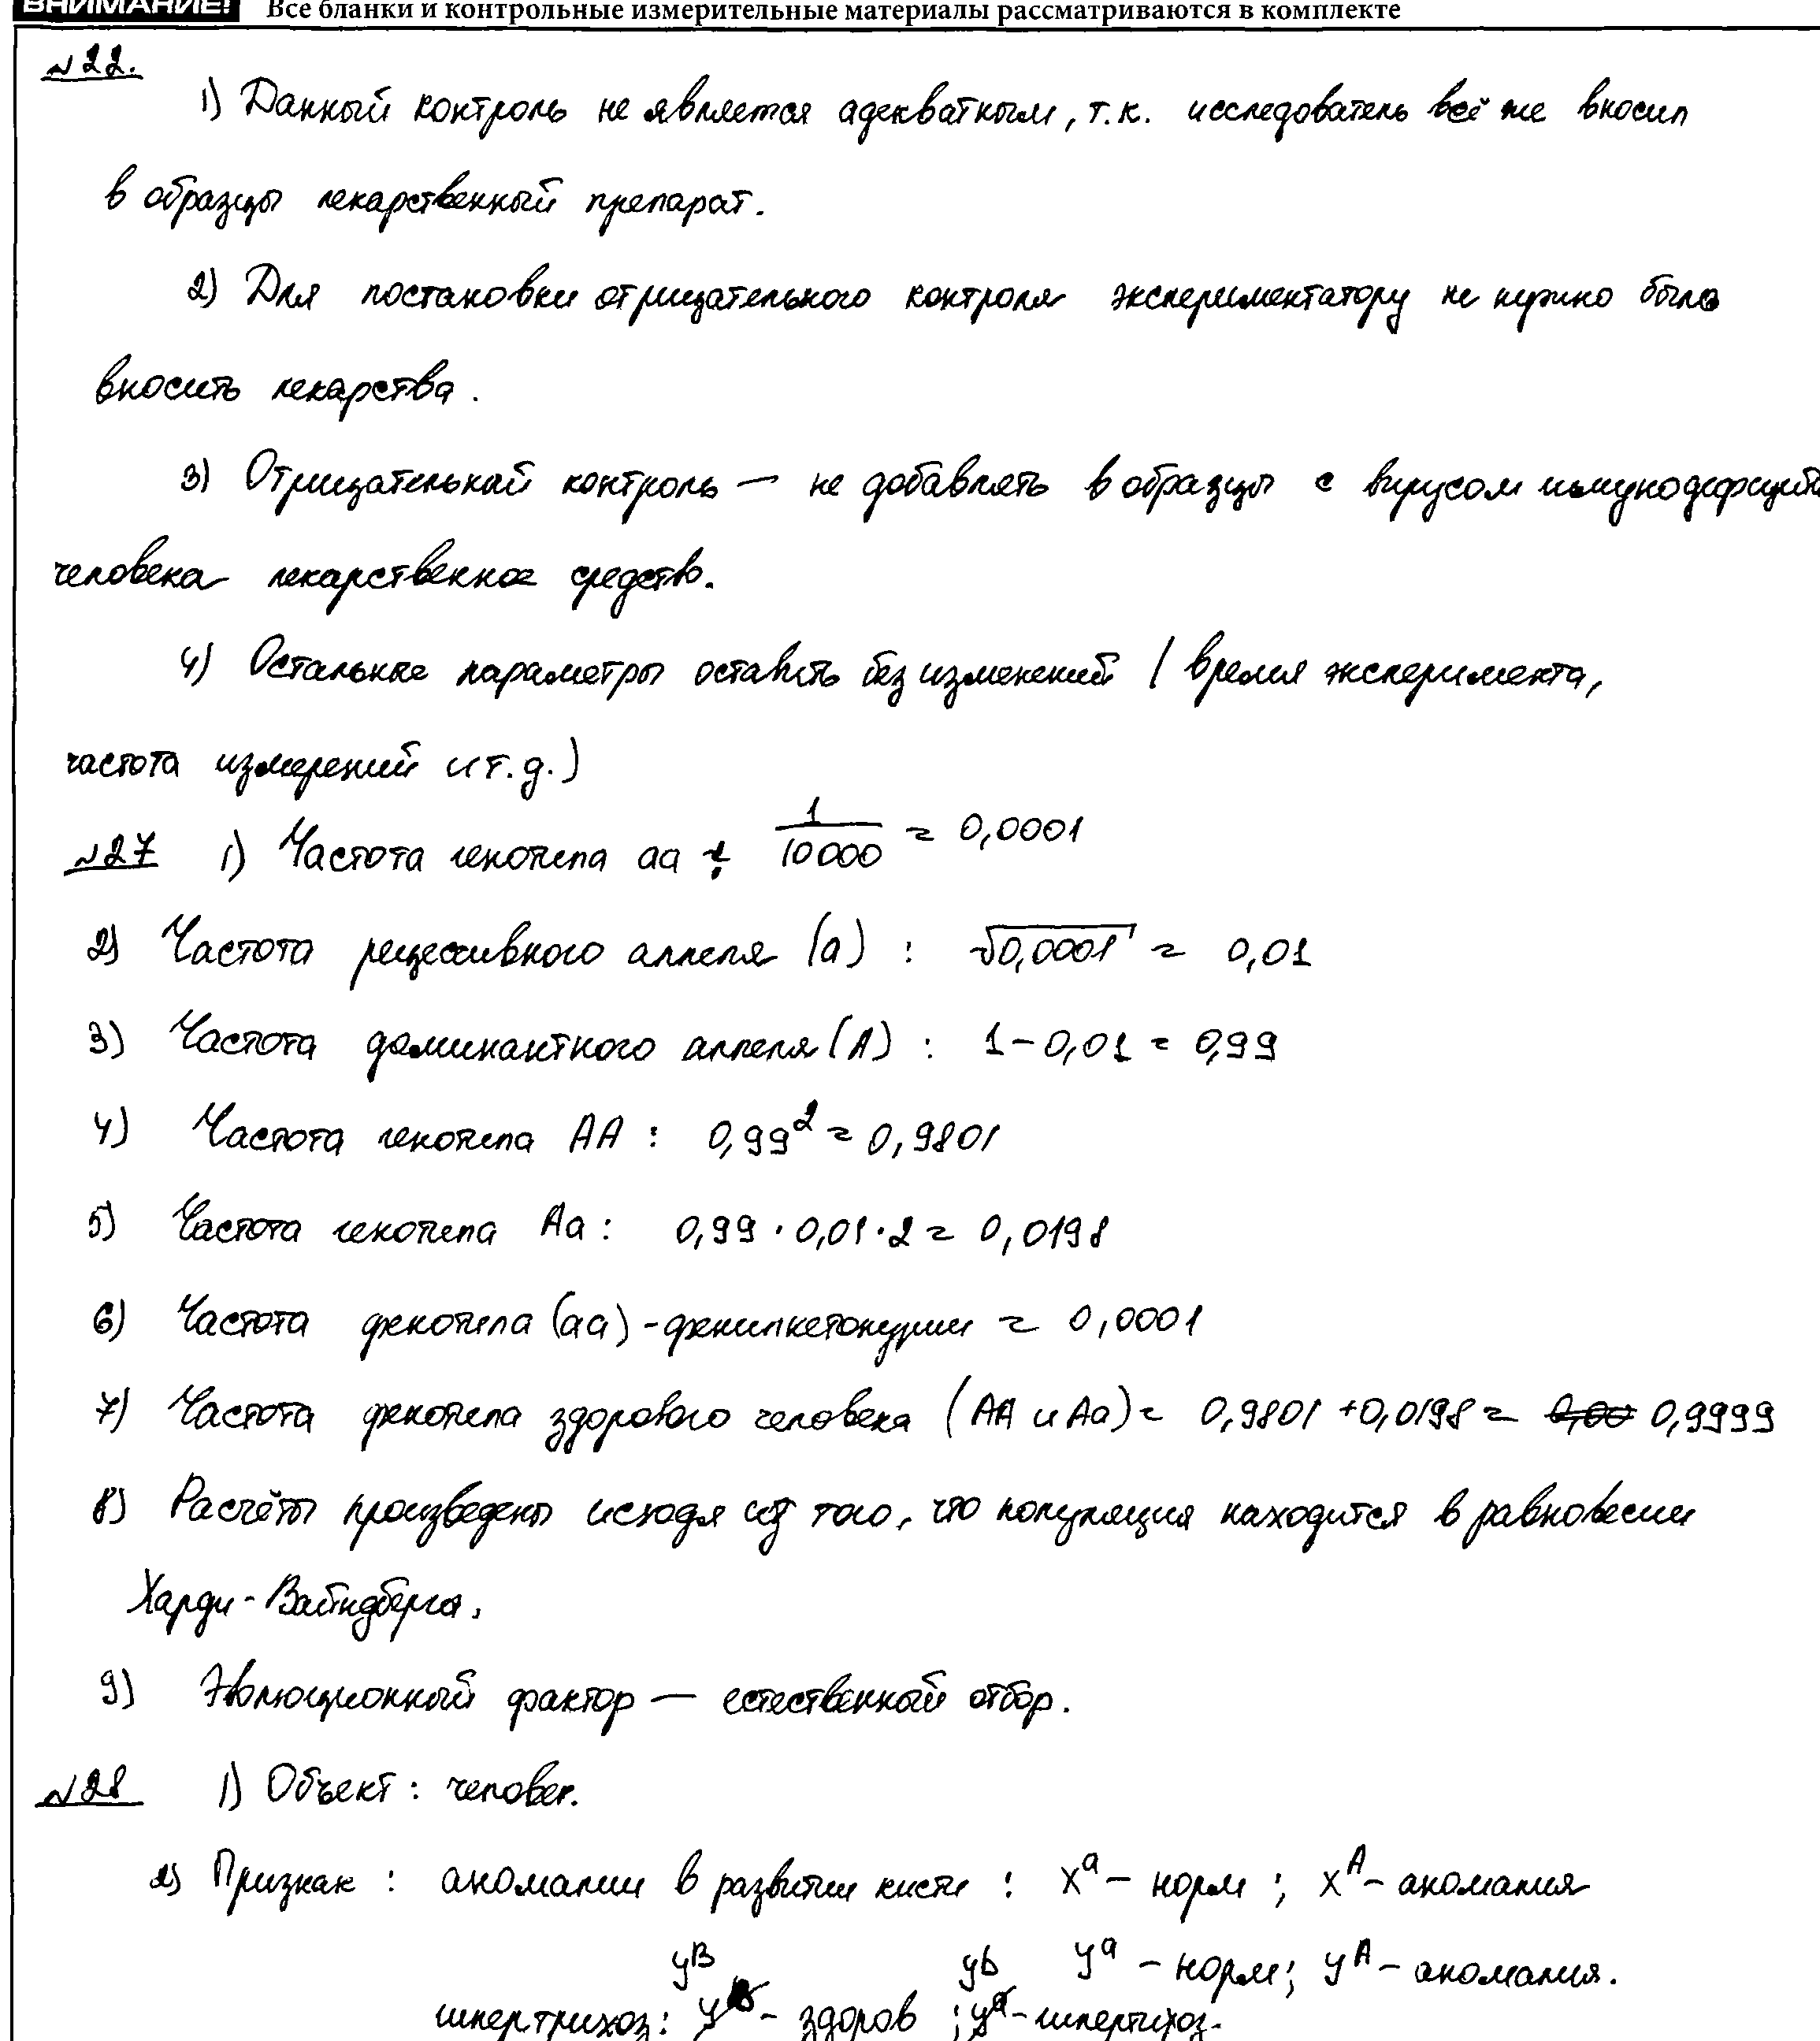 ВНИМАНИЕ! Все бланки и контрольные измерительные материалы рассматриваются в комплекте
№22.
1) Данный контроль не является адекватным, т.к. исследователь всё же вносил
в образцы лекарственный препарат.
2) Для постановки отрицательного контроля экспериментатору не нужно было
вносить лекарства.
3) Отрицательный контроль — не добавлять в образцы с вирусом иммунодефицита
человека лекарственное средство.
4) Остальные параметры оставить без изменений (время эксперимента,
частота измерений и т.д.)
№27 1) Частота генотипа aa : 1/10000 = 0,0001
2) Частота рецессивного аллеля (a) : √0,0001 = 0,01
3) Частота доминантного аллеля (A) : 1 - 0,01 = 0,99
4) Частота генотипа AA : 0,99² = 0,9801
5) Частота генотипа Aa : 0,99 · 0,01 · 2 = 0,0198
6) Частота фенотипа (aa) - фенилкетонурии = 0,0001
7) Частота фенотипа здорового человека (AA и Aa) = 0,9801 + 0,0198 = 0,9999
8) Расчёты произведены исходя из того, что популяция находится в равновесии
Харди-Вайндберга.
9) Эволюционный фактор — естественный отбор.
№28 1) Объект : человек.
2) Признак : аномалии в развитии кисти : Xᵃ - норм ; Xᴬ - аномалия
Yᵃ - норм ; Yᴬ - аномалия.
гипертрихоз : Yᴮ - здоров ; Yᵇ - гипертихоз.